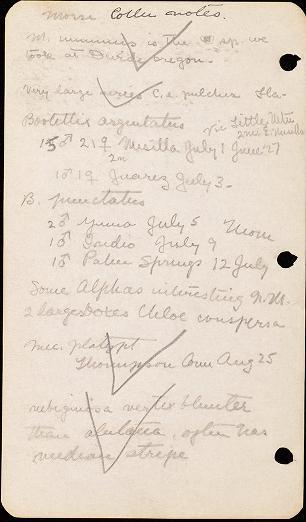 Morse Colln notes.
M. is the sp. we
took at Divide Oregon.
Very large series C. a. pulcher Fla.
Bootettix argentatus
vic Little, Utm
2mi E. Mesilla
15♂ 21♀ Mesilla July 1 June 27
2m
1♂ 1♀ Juarez July 3.
B. punctatus
2♂ Yuma July 5 Mom
1♂ Indio July 9
1♂ Palm Springs 12 July
Some Alphas interesting N.M.
2 large boxes Chloe conspersa
Mec. platypt
Thompson Conn Aug 25
rubiginosa vertex blunter
than alutacea, often has
median stripe